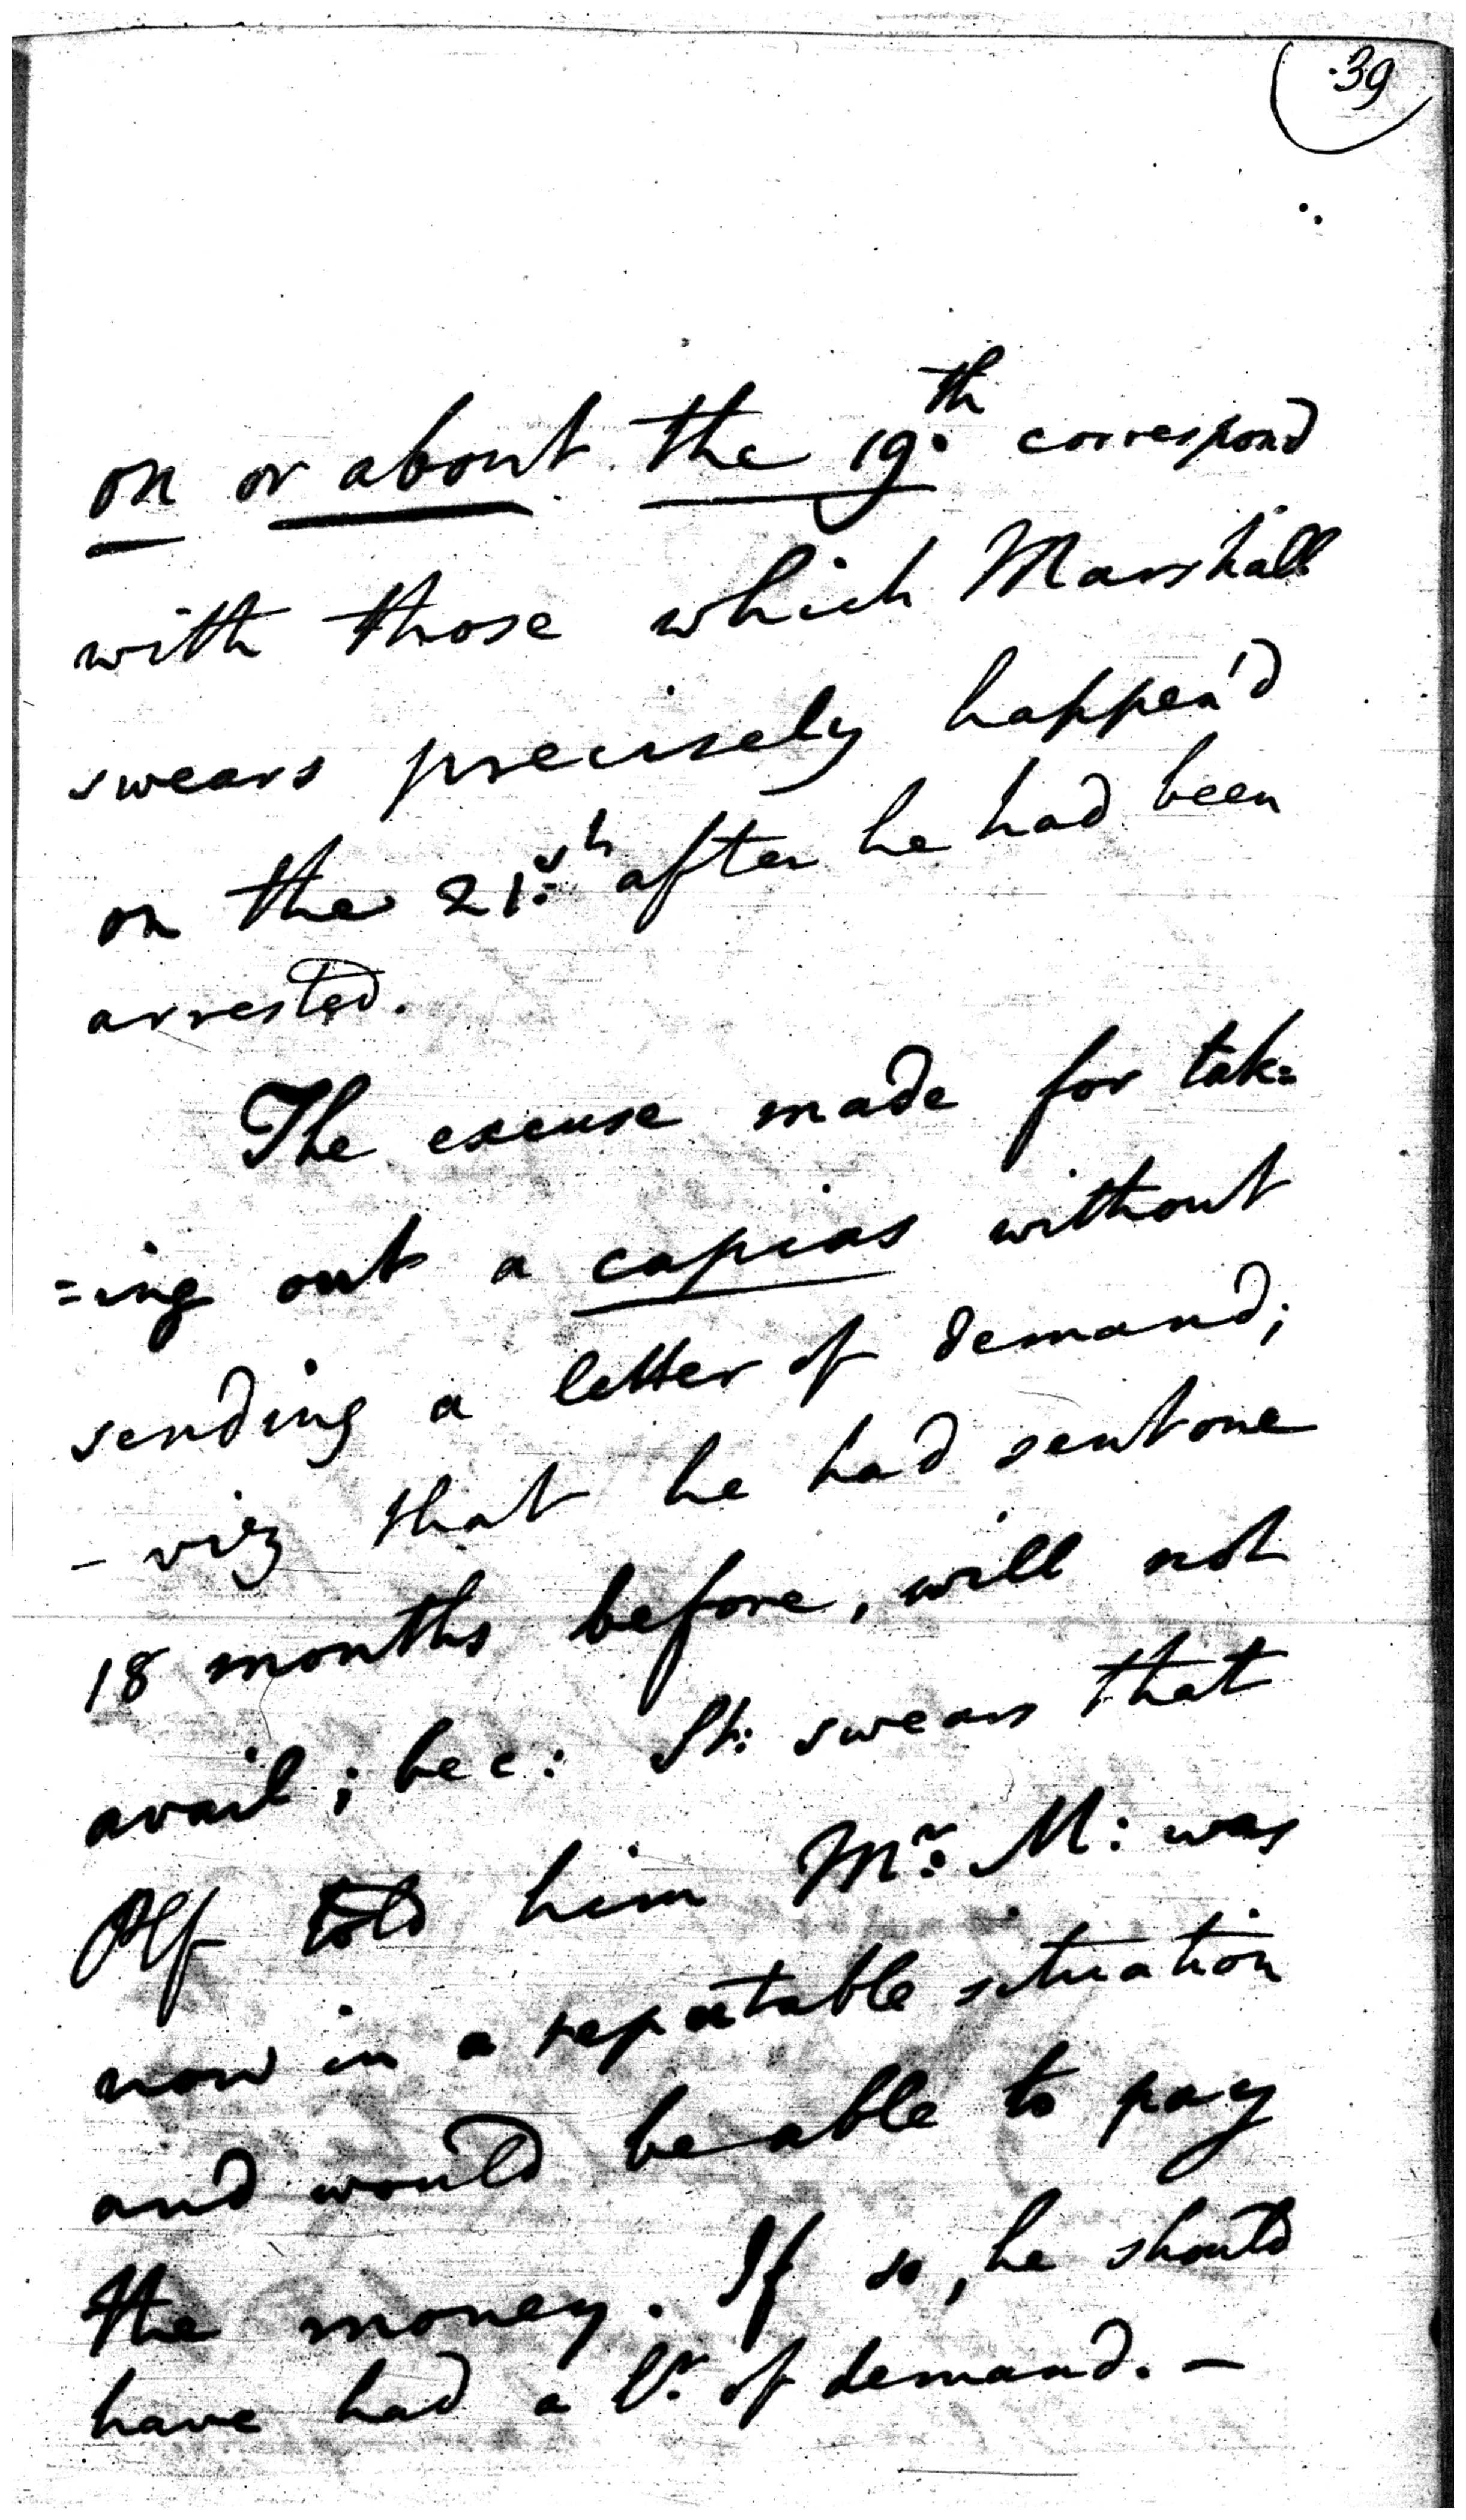 39
on or about the 19.th correspond
with those which Marshall
swears precisely happen'd
on the 21:st after he had been
arrested.
The excuse made for tak=
=ing out a capias without
sending a letter of demand;
- viz that he had sent one
18 months before, will not
avail; bec: St: swears that
told him Mr: M: was
now in a reputable situation
and would be able to pay
the money. If so, he should
have had a lr. of demand. -